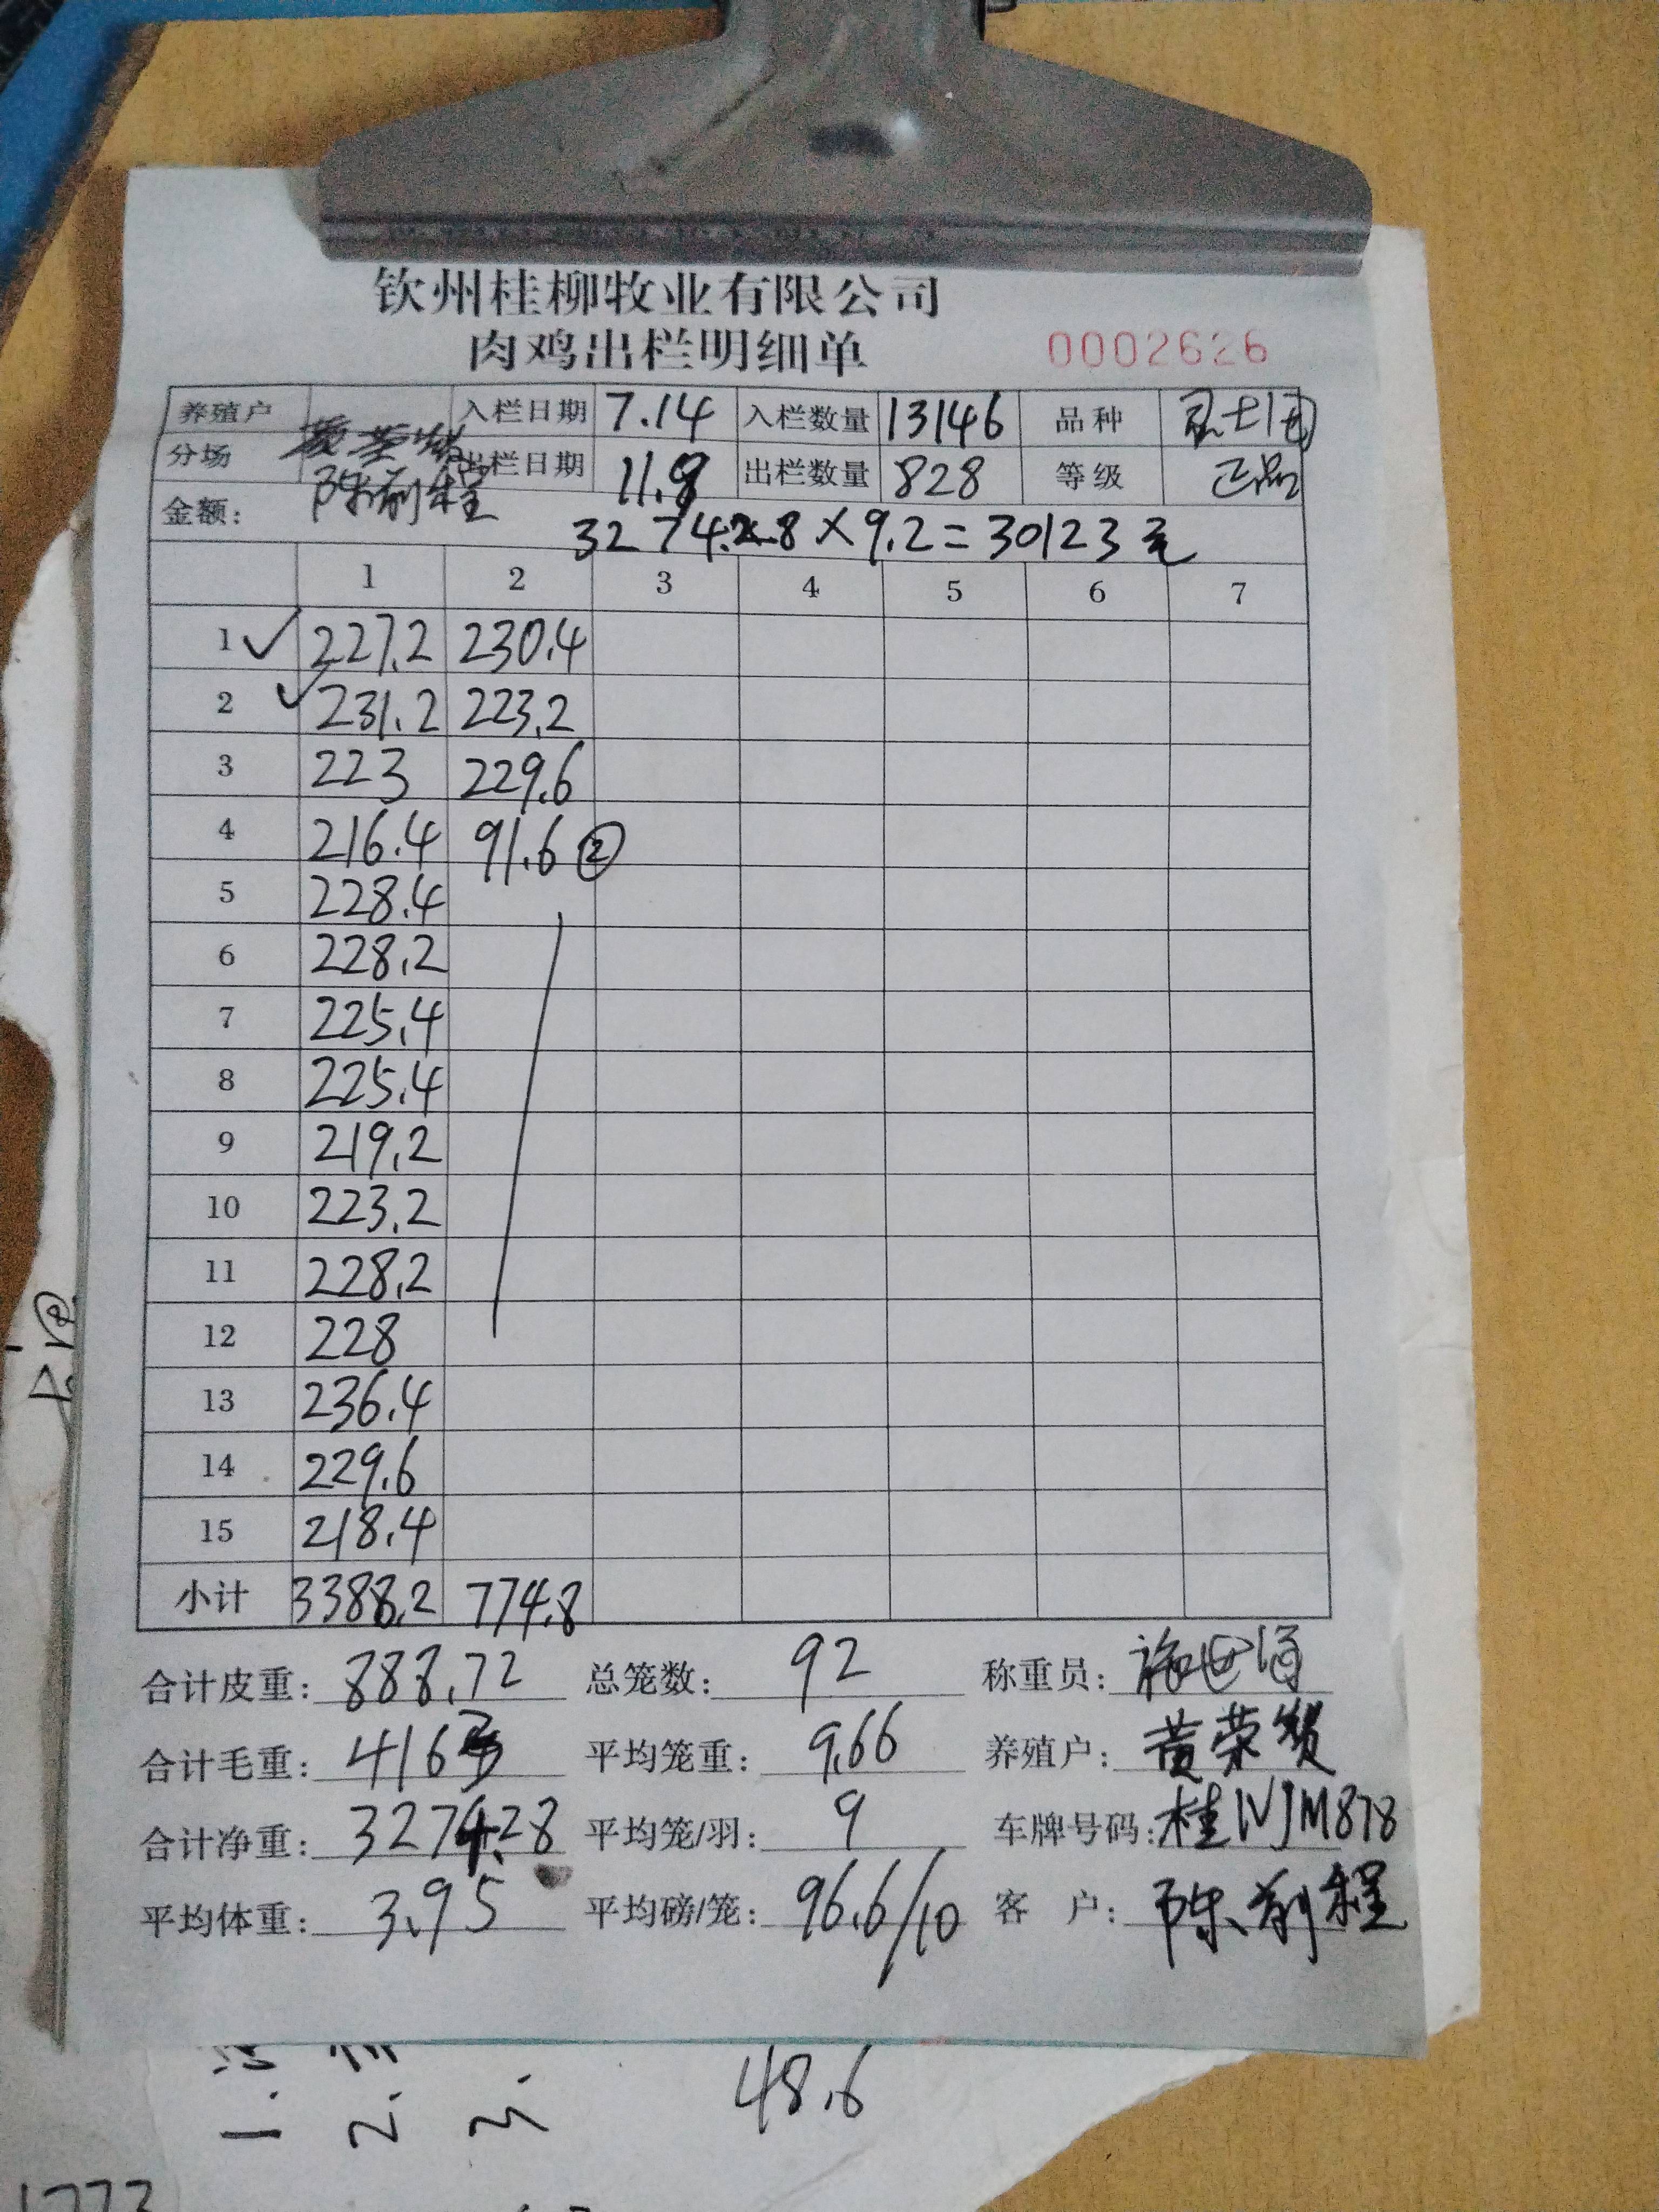 钦州桂柳牧业有限公司
肉鸡出栏明细单 0002626
养殖户 入栏日期 7.14 入栏数量 13146 品种
分场 陈前程 出栏日期 11.9 出栏数量 828 等级 正品
金额: 3274.28×9.2=30123元
1 2 3 4 5 6 7
1 ✓ 227.2 230.4
2 ✓ 231.2 223.2
3 223 229.6
4 216.4 91.6 ②
5 228.4
6 228.2
7 225.4
8 225.4
9 219.2
10 223.2
11 228.2
12 228
13 236.4
14 229.6
15 218.4
小计 3388.2 774.8
合计皮重: 888.72 总笼数: 92 称重员:
合计毛重: 4163 平均笼重: 9.66 养殖户: 黄荣
合计净重: 3274.28 平均笼/羽: 9 车牌号码: 桂NJM878
平均体重: 3.95 平均磅/笼: 96.6/10 客 户: 陈前程
48.6
1. 2. 3.
1773